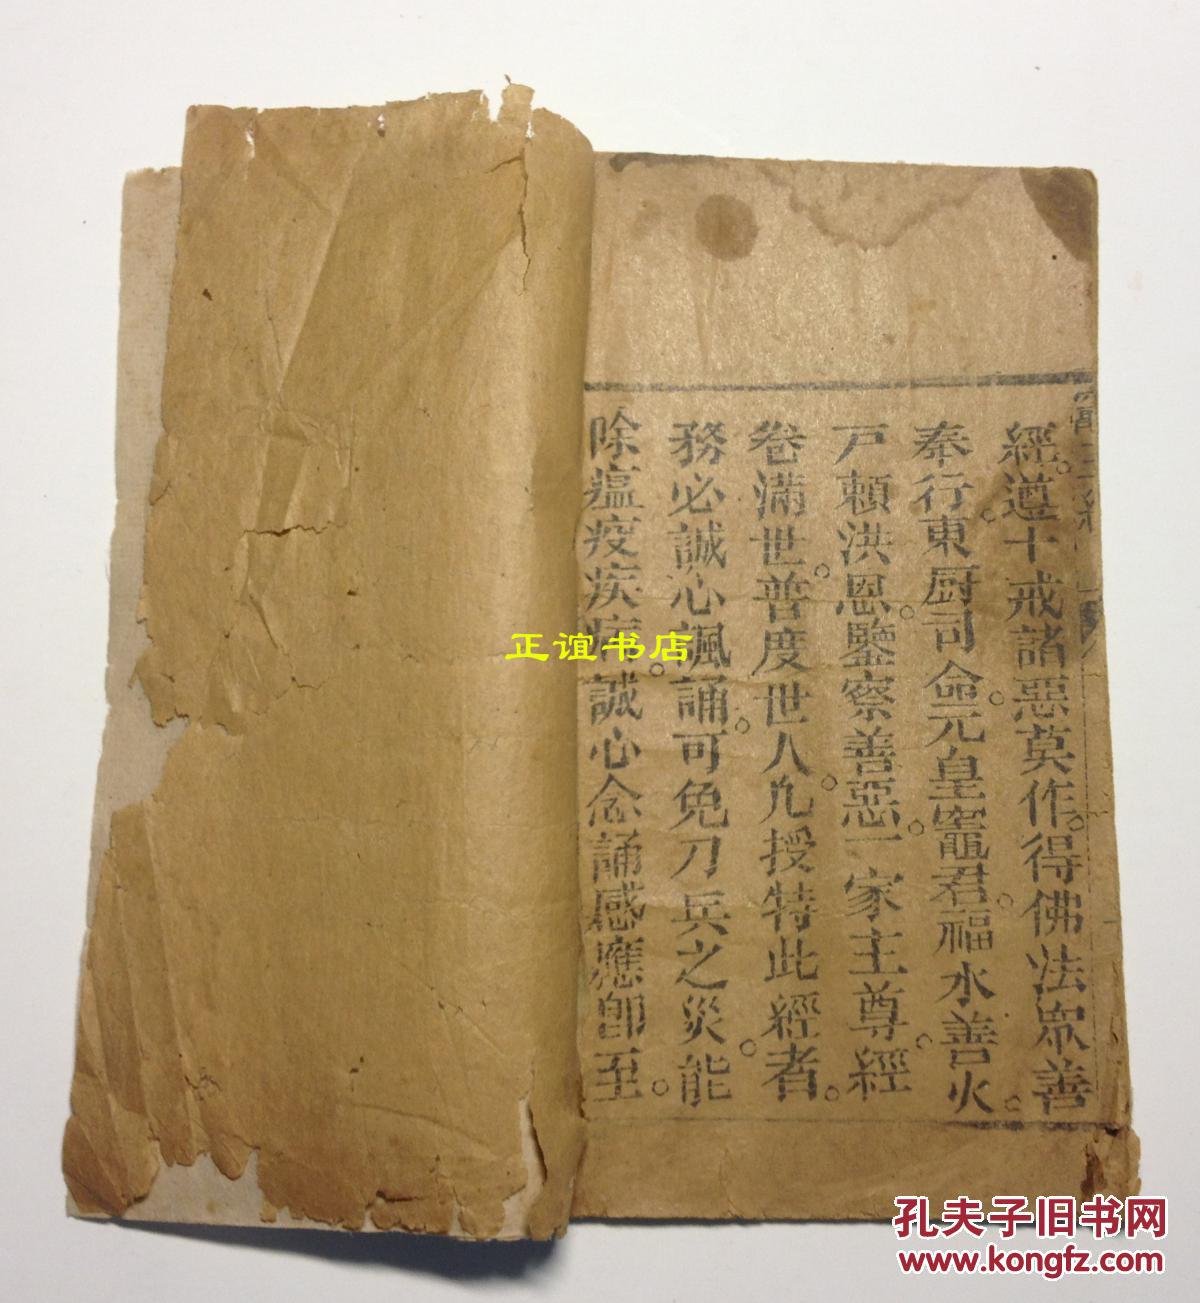 經遵十戒諸惡莫作得佛法眾善
奉行東厨司命元皇竈君福水善火
戸賴洪恩鑒察善惡一家主尊經
卷滿世普度世人凢授特此經者
務必誠心諷誦可免刀兵之災能
除瘟疫疾病誠心念誦感應卽至
正谊书店
孔夫子旧书网
www.kongfz.com